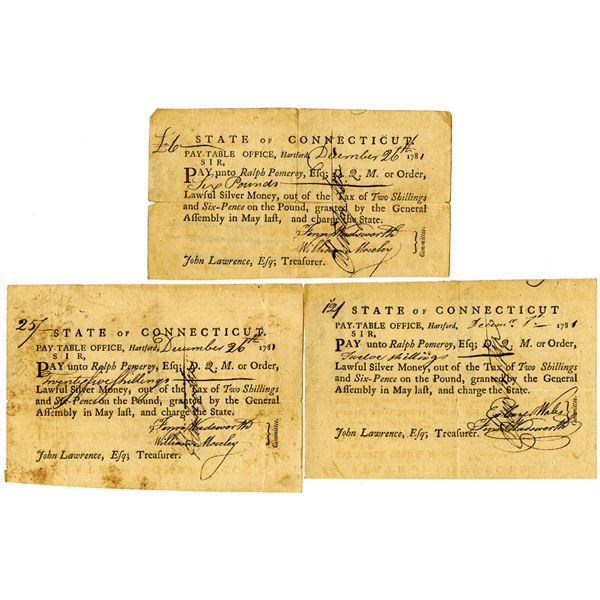 £6
STATE OF CONNECTICUT.
PAY-TABLE OFFICE, Hartford, December 26th 1781
SIR,
PAY unto Ralph Pomeroy, Esq; D. Q. M. or Order,
Six Pounds
Lawful Silver Money, out of the Tax of Two Shillings
and Six-Pence on the Pound, granted by the General
Assembly in May last, and charge the State.
Fenn Wadsworth
William Moseley
Committee.
John Lawrence, Esq; Treasurer.
25/
STATE OF CONNECTICUT.
PAY-TABLE OFFICE, Hartford, December 26th 1781
SIR,
PAY unto Ralph Pomeroy, Esq; D. Q. M. or Order,
Twenty five shillings
Lawful Silver Money, out of the Tax of Two Shillings
and Six-Pence on the Pound, granted by the General
Assembly in May last, and charge the State.
Fenn Wadsworth
William Moseley
Committee.
John Lawrence, Esq; Treasurer.
12/
STATE OF CONNECTICUT
PAY-TABLE OFFICE, Hartford, 1781
SIR,
PAY unto Ralph Pomeroy, Esq; D. Q. M. or Order,
Twelve shillings
Lawful Silver Money, out of the Tax of Two Shillings
and Six-Pence on the Pound, granted by the General
Assembly in May last, and charge the State.
Wales
Fenn Wadsworth
Committee.
John Lawrence, Esq; Treasurer.